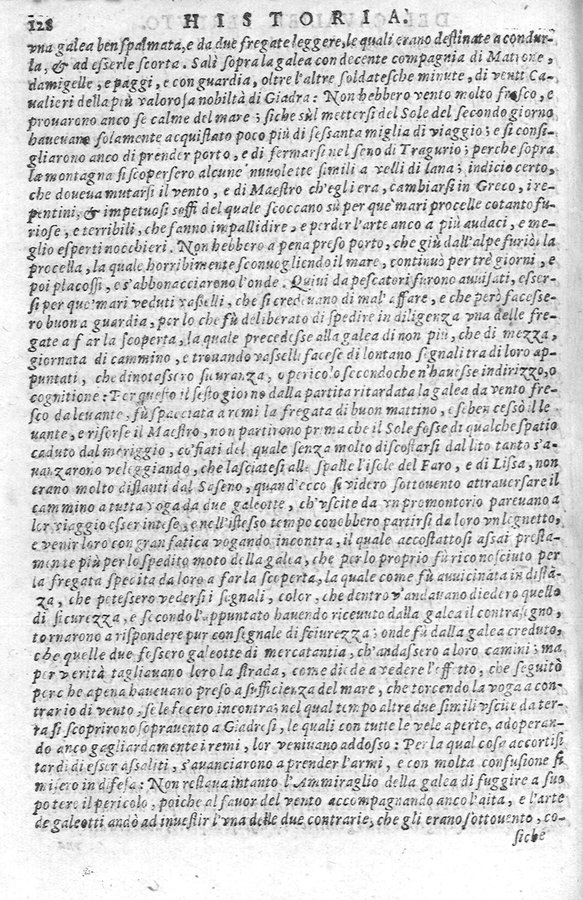 128 HISTORIA.
vna galea ben spalmata, e da due fregate leggere, le quali erano destinate a condur-
la, & ad esserle scorta. Salì sopra la galea con decente compagnia di Matrone,
damigelle, e paggi, e con guardia, oltre l'altre soldatesche minute, di venti Ca-
ualieri della più valorosa nobiltà di Giadra: Non hebbero vento molto fresco, e
prouarono anco se calme del mare; siche sùl mettersi del Sole del secondo giorno
haueuane solamente acquistato poco più di sessanta miglia di viaggio; e si consi-
gliarono anco di prender porto, e di fermarsi nel seno di Tragurio; perche sopra
la montagna si scopersero alcune nuuolette simili a velli di lana; indicio certo,
che doueua mutarsi il vento, e di Maestro ch'egli era, cambiarsi in Greco, i re-
pentini, & impetuosi soffi del quale scoccano sù per que' mari procelle cotanto fu-
riose, e terribili, che fanno impallidire, e perder l'arte anco a più audaci, e me-
glio esperti nocchieri. Non hebbero a pena preso porto, che giù dall'alpe furiò la
procella, la quale horribilmente sconuogliendo il mare, continuò per tre giorni, e
poi placossi, e s'abbonacciarono l'onde. Quiui da pescatori furono auuisati, esser-
si per que' mari veduti vasselli, che si credeuano di mal' affare, e che però facesse-
ro buona guardia, per lo che fù deliberato di spedire in diligenza vna delle fre-
gate a far la scoperta, la quale precedesse alla galea di non più, che di mezza
giornata di cammino, e trouando vasselli facesse di lontano segnali tra di loro ap-
puntati, che dinotassero sicuranza, o pericolo secondo che n'hauesse indirizzo, o
cognitione: Per questo il sesto giorno dalla partita ritardata la galea da vento fre-
sco da leuante, fù spacciata a remi la fregata di buon mattino, e se ben cessò il le
uante, e risorse il Maestro, non partirono prima che il Sole fosse di qualche spatio
caduto dal meriggio, co' fiati del quale senza molto discostarsi dal lito tanto s'a-
uanzarono veleggiando, che lasciatesi alle spalle l'isole del Faro, e di Lissa, non
erano molto distanti dal Saseno, quand'ecco si videro sottouento attrauersare il
cammino a tutta voga da due galeotte, ch'vscite da vn promontorio pareuano a
lor viaggio esser intese, e nell'istesso tempo conobbero partirsi da loro vn legnetto,
e venir loro con gran fatica vogando incontra, il quale accostattosi assai presta-
mente più per lo spedito moto della galea, che per lo proprio fù riconosciuto per
la fregata spedita da loro a far la scoperta, la quale come fù auuicinata in distã-
za, che potessero vedersi i segnali, color, che dentro v'andauano diedero quello
di sicurezza, e secondo l'appuntato hauendo riceuuto dalla galea il contrasegno,
tornarono a rispondere pur con segnale di sicurezza; onde fù dalla galea creduto,
che quelle due fossero galeotte di mercatantia, ch'andassero a loro camini; ma
per verità tagliauano loro la strada, come diede a vedere l'effetto, che seguitò
perche apena haueuano preso a sufficienza del mare, che torcendo la voga a con-
trario di vento, se le fecero incontra; nel qual tempo altre due simili vscite da ter-
ra si scoprirono soprauento a Giadresi, le quali con tutte le vele aperte, adoperan-
do anco gagliardamente i remi, lor veniuano addosso: Per la qual cosa accortisi
tardi di esser assaliti, s'auanciarono a prender l'armi, e con molta confusione si
misero in difesa: Non restaua intanto l'Ammiraglio della galea di fuggire a suo
potere il pericolo, poiche al fauor del vento accompagnando anco l'aita, e l'arte
de galeotti andò ad inuestir l'vna delle due contrarie, che gli erano sottouento, co-
siche